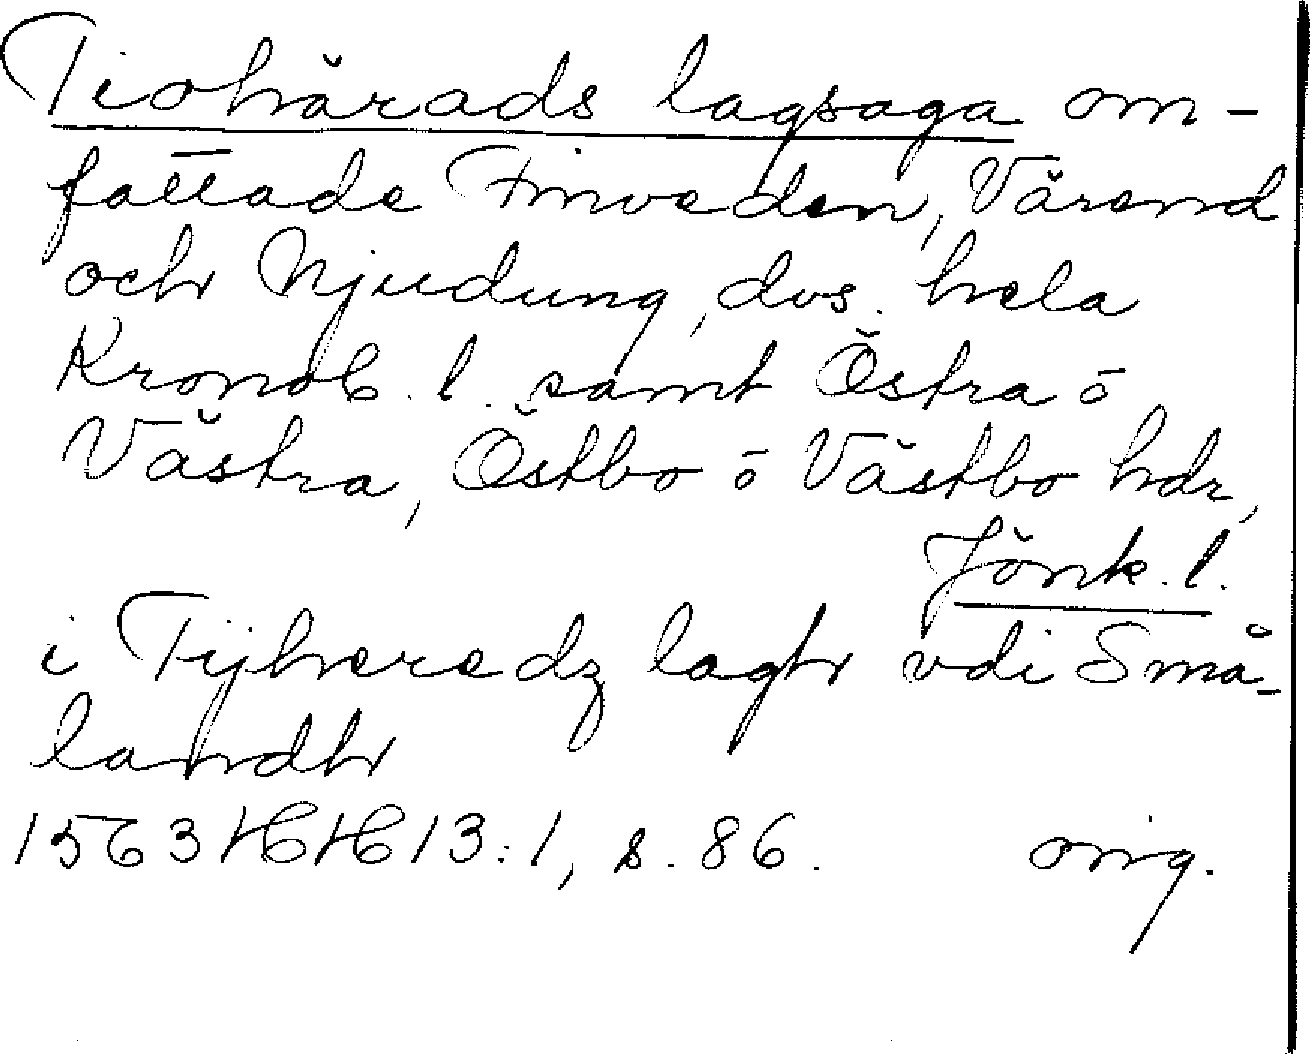 Tiohärads lagsaga om-
fattade Finveden, Värend
och Njudung, dvs. hela
Kronob. l. samt Östra o
Västra, Östbo o Västbo hdr,
Jönk. l.
i Tijheredz lagh vdi Små-
landh
1563 HH 13:1, s. 86. orig.